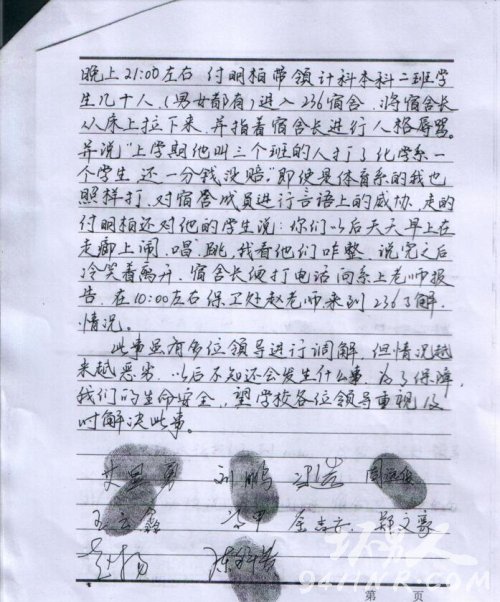 晚上21:00左右 付明柏带领计科本科二班学
生几十人(男女都有)进入236宿舍.将宿舍长
从床上拉下来.并指着宿舍长进行人格辱骂。
并说"上学期他叫三个班的人打了化学系一
个学生 还一分钱没赔."即使是体育系的我也
照样打.对宿舍成员进行言语上的威协.走的
付明柏还对他的学生说:你们以后天天早上在
走廊上闹.唱.跳,我看他们咋整.说完之后
冷笑着离开.宿舍长便打电话向系上老师报
告.在10:00左右保卫处赵老师来到236了解
情况。
此事虽有多位领导进行调解,但情况越
来越恶劣.以后不知还会发生什么事.为了保障
我们的生命安全,望学校各位领导重视及
时解决此事。
刘鹏
第 页